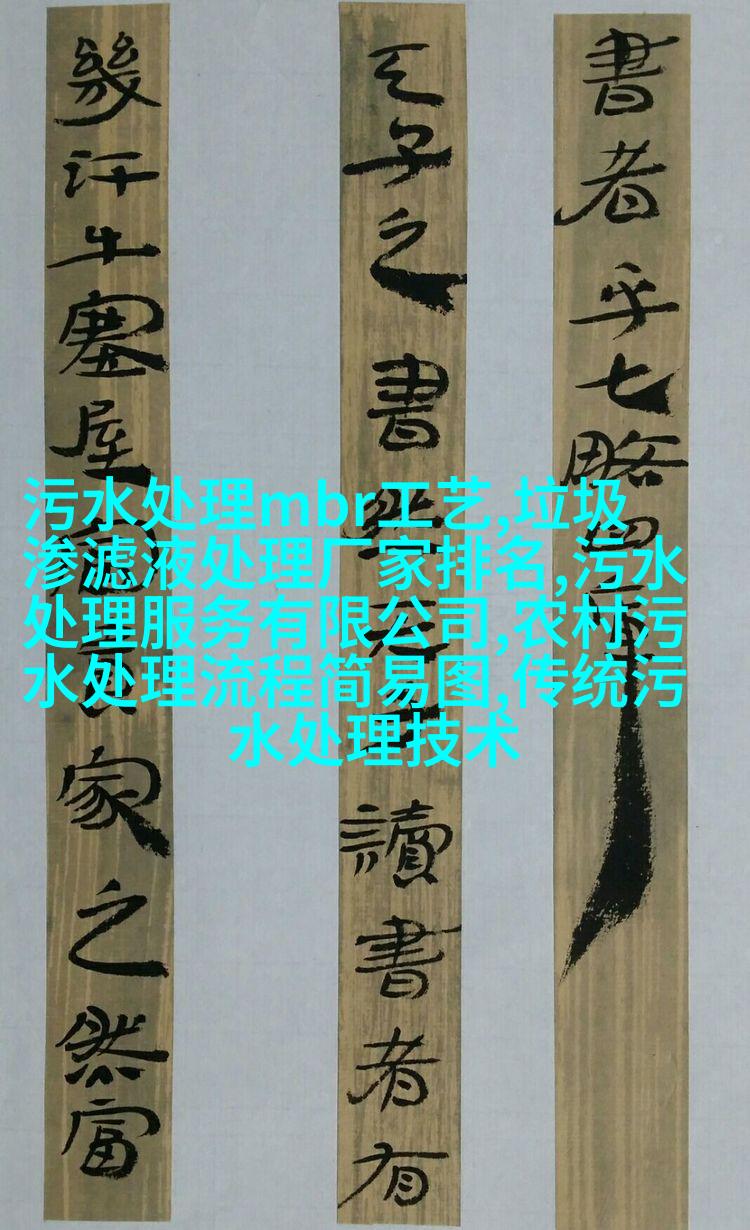 書者乎七略四庫
天子之書然讀書者有
幾汗牛塞屋富家之然富
污水处理mbr工艺,垃圾
渗滤液处理厂家排名,污水
处理服务有限公司,农村污
水处理流程简易图,传统污
水处理技术